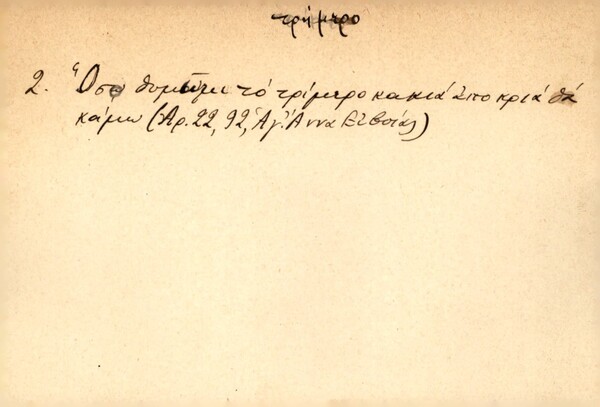 τρίμερο
2. Ὅσο θυμοῦμαι τό τρίμερο κακιά ἀποκριά θά
κάμω (Ἀρ. 22, 92, Ἁγ. Ἄννα Εὐβοίας)